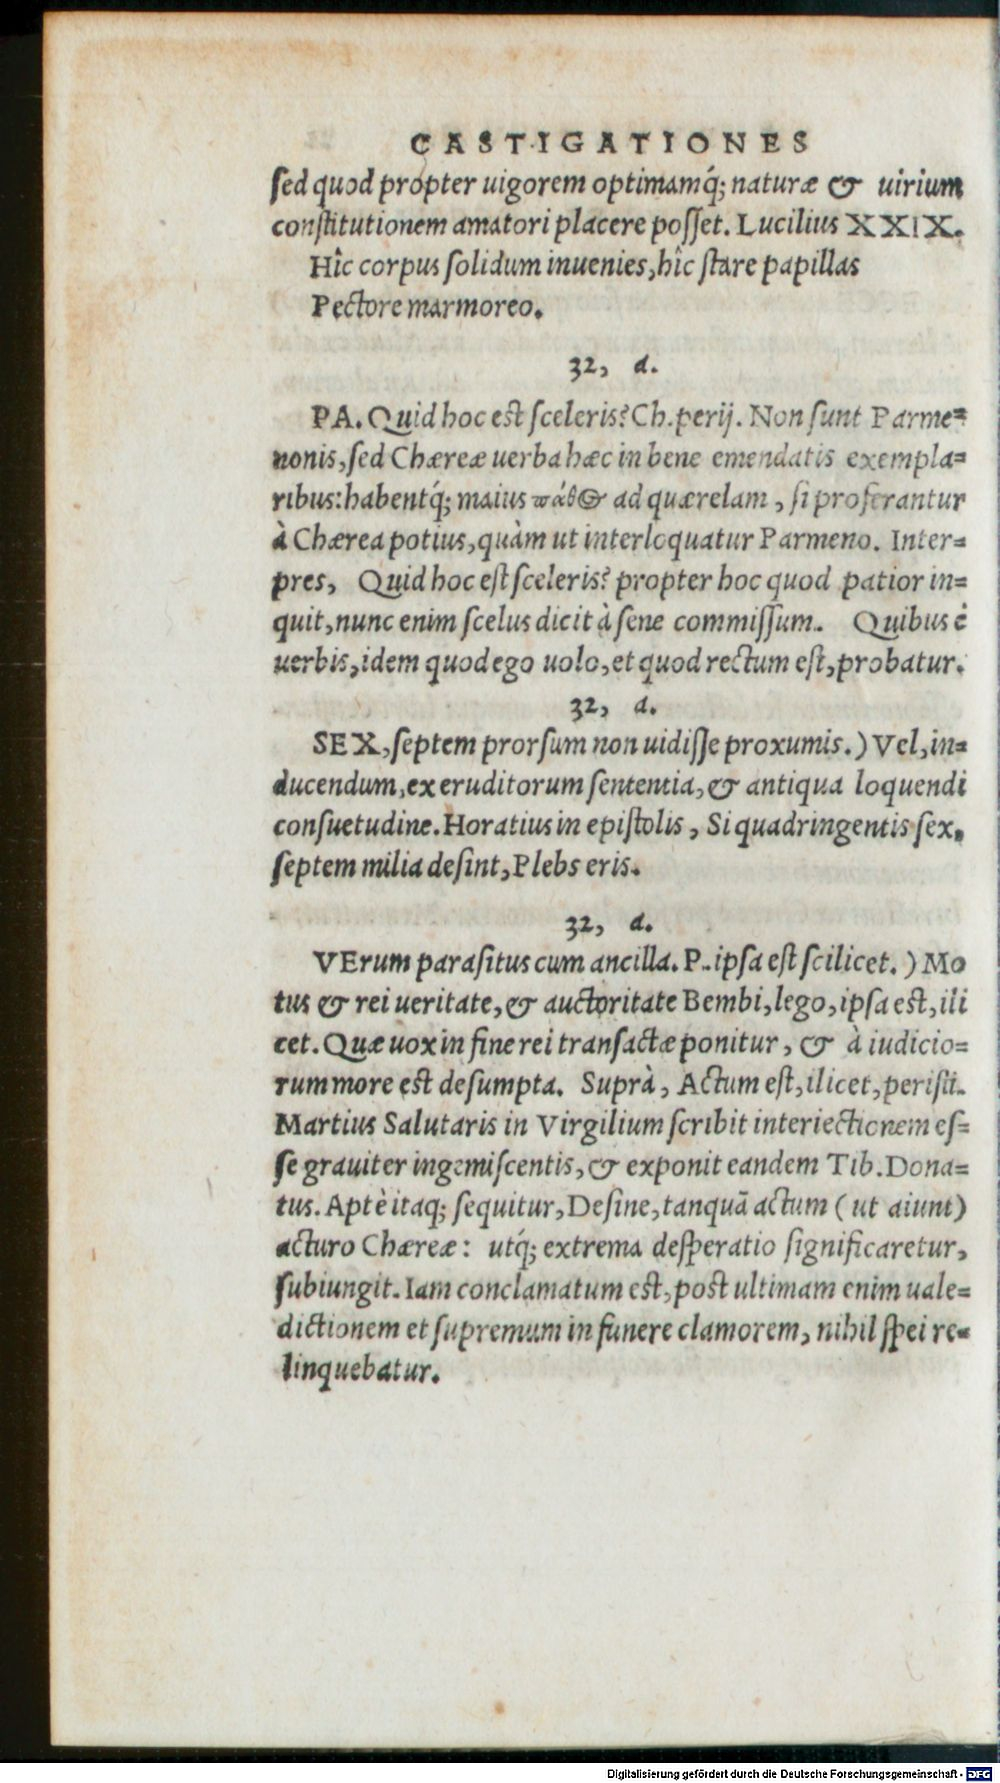 CASTIGATIONES
sed quod propter uigorem optimamq́; naturæ & uirium
constitutionem amatori placere posset. Lucilius XXIX.
Hîc corpus solidum inuenies, hîc stare papillas
Pectore marmoreo.
32, d.
PA. Quid hoc est sceleris? Ch. perij. Non sunt Parme=
nonis, sed Chæreæ uerba hæc in bene emendatis exempla=
ribus: habentq́; maius πάθος ad quærelam, si proferantur
à Chærea potius, quàm ut interloquatur Parmeno. Inter=
pres, Quid hoc est sceleris? propter hoc quod patior in=
quit, nunc enim scelus dicit à sene commissum. Quibus è
uerbis, idem quod ego uolo, et quod rectum est, probatur.
32, d.
SEX, septem prorsum non uidisse proxumis.) Vel, in=
ducendum, ex eruditorum sententia, & antiqua loquendi
consuetudine. Horatius in epistolis, Si quadringentis sex,
septem milia desint, Plebs eris.
32, d.
VErum parasitus cum ancilla. P. ipsa est scilicet.) Mo
tus & rei ueritate, & auctoritate Bembi, lego, ipsa est, ili
cet. Quæ uox in fine rei transactæ ponitur, & à iudicio=
rum more est desumpta. Suprà, Actum est, ilicet, peristi.
Martius Salutaris in Virgilium scribit interiectionem es=
se grauiter ingemiscentis, & exponit eandem Tib. Dona=
tus. Aptè itaq; sequitur, Desine, tanquā actum (ut aiunt)
acturo Chæreæ: utq́; extrema desperatio significaretur,
subiungit. Iam conclamatum est, post ultimam enim uale=
dictionem et supremum in funere clamorem, nihil spei re=
linquebatur.
Digitalisierung gefördert durch die Deutsche Forschungsgemeinschaft - DFG